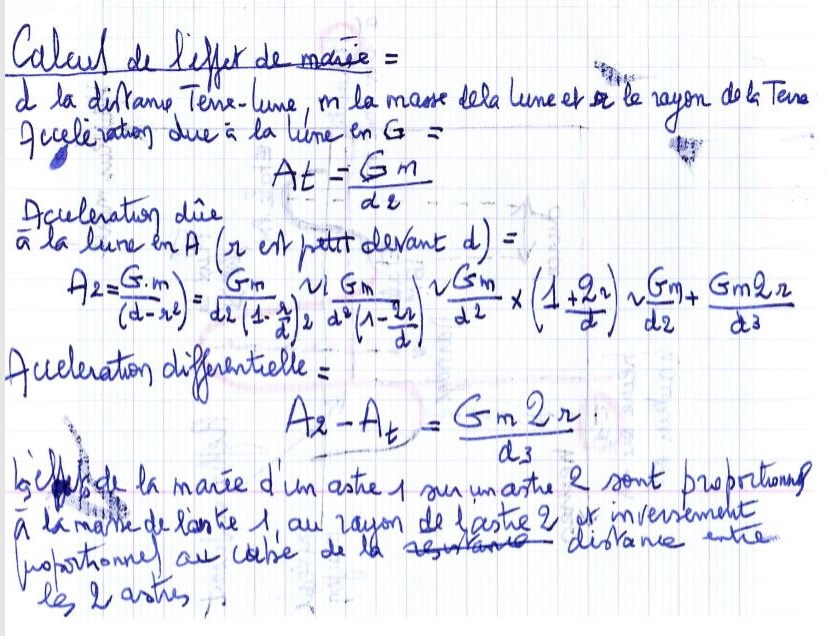 Calcul de l'effet de marée =
d la distance Terre-lune, m la masse de la lune et r le rayon de la Terre
Accélération due à la lune en G =
At = Gm / d2
Acceleration dûe
à la lune en A (r est petit devant d) =
A2 = G.m / (d-r²) = Gm / d2(1-r/d)2 ~ Gm / d²(1-2r/d) ~ Gm / d2 × (1+2r/d) ~ Gm / d2 + Gm2r / d3
Acceleration differentielle =
A2 - At = Gm2r / d3
L'effet de la marée d'un astre 1 sur un astre 2 sont proportionnel
à la masse de l'astre 1, au rayon de l'astre 2 et inversement
proportionnel au cube de la distance entre
les 2 astres,.